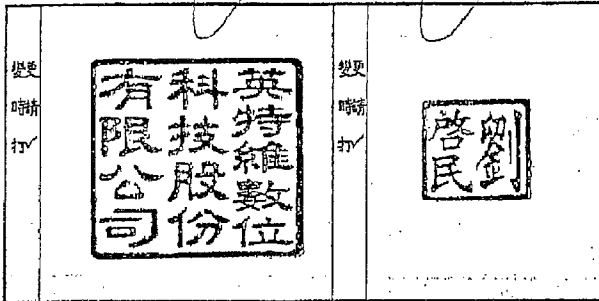 變更時請打✓
英特維數位
科技股份
有限公司
變更時請打✓
劉
啓民